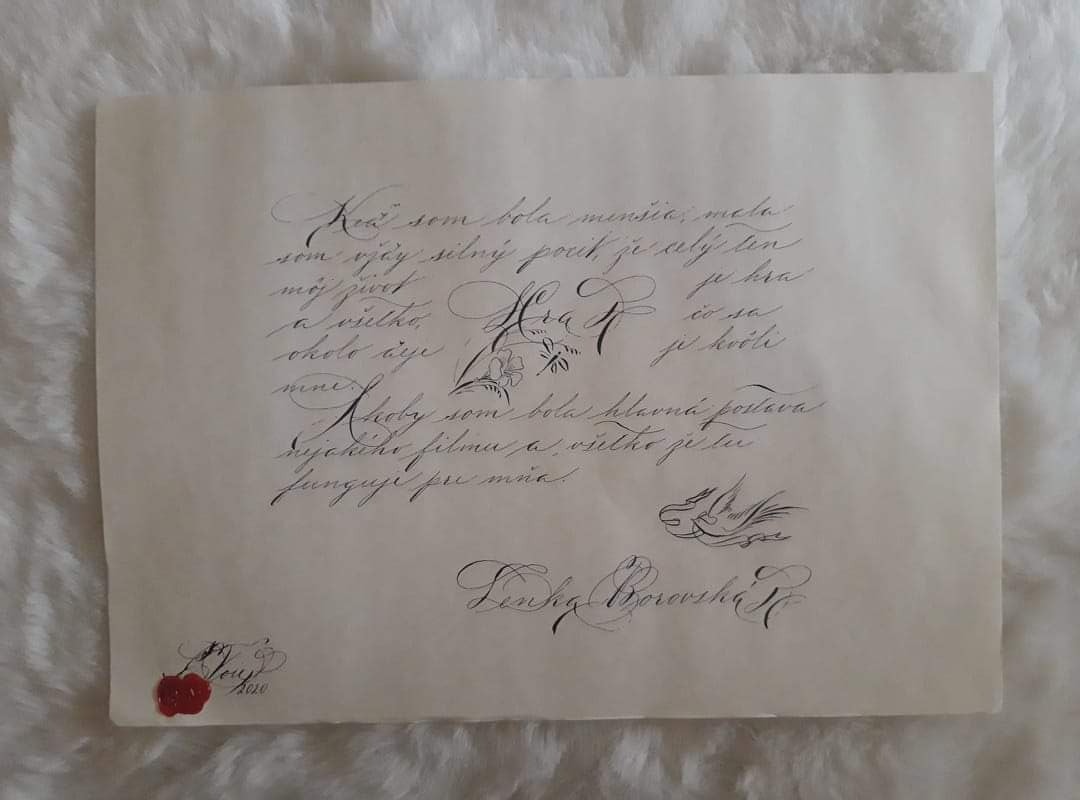 Keď som bola menšia, mala
som vždy silný pocit, že celý ten
môj život je hra
a všetko, čo sa
okolo deje je kvôli
mne.
Hra
Akoby som bola hlavná postava
nejakého filmu a všetko že tu
funguje pre mňa.
Lenka Borovská
2020